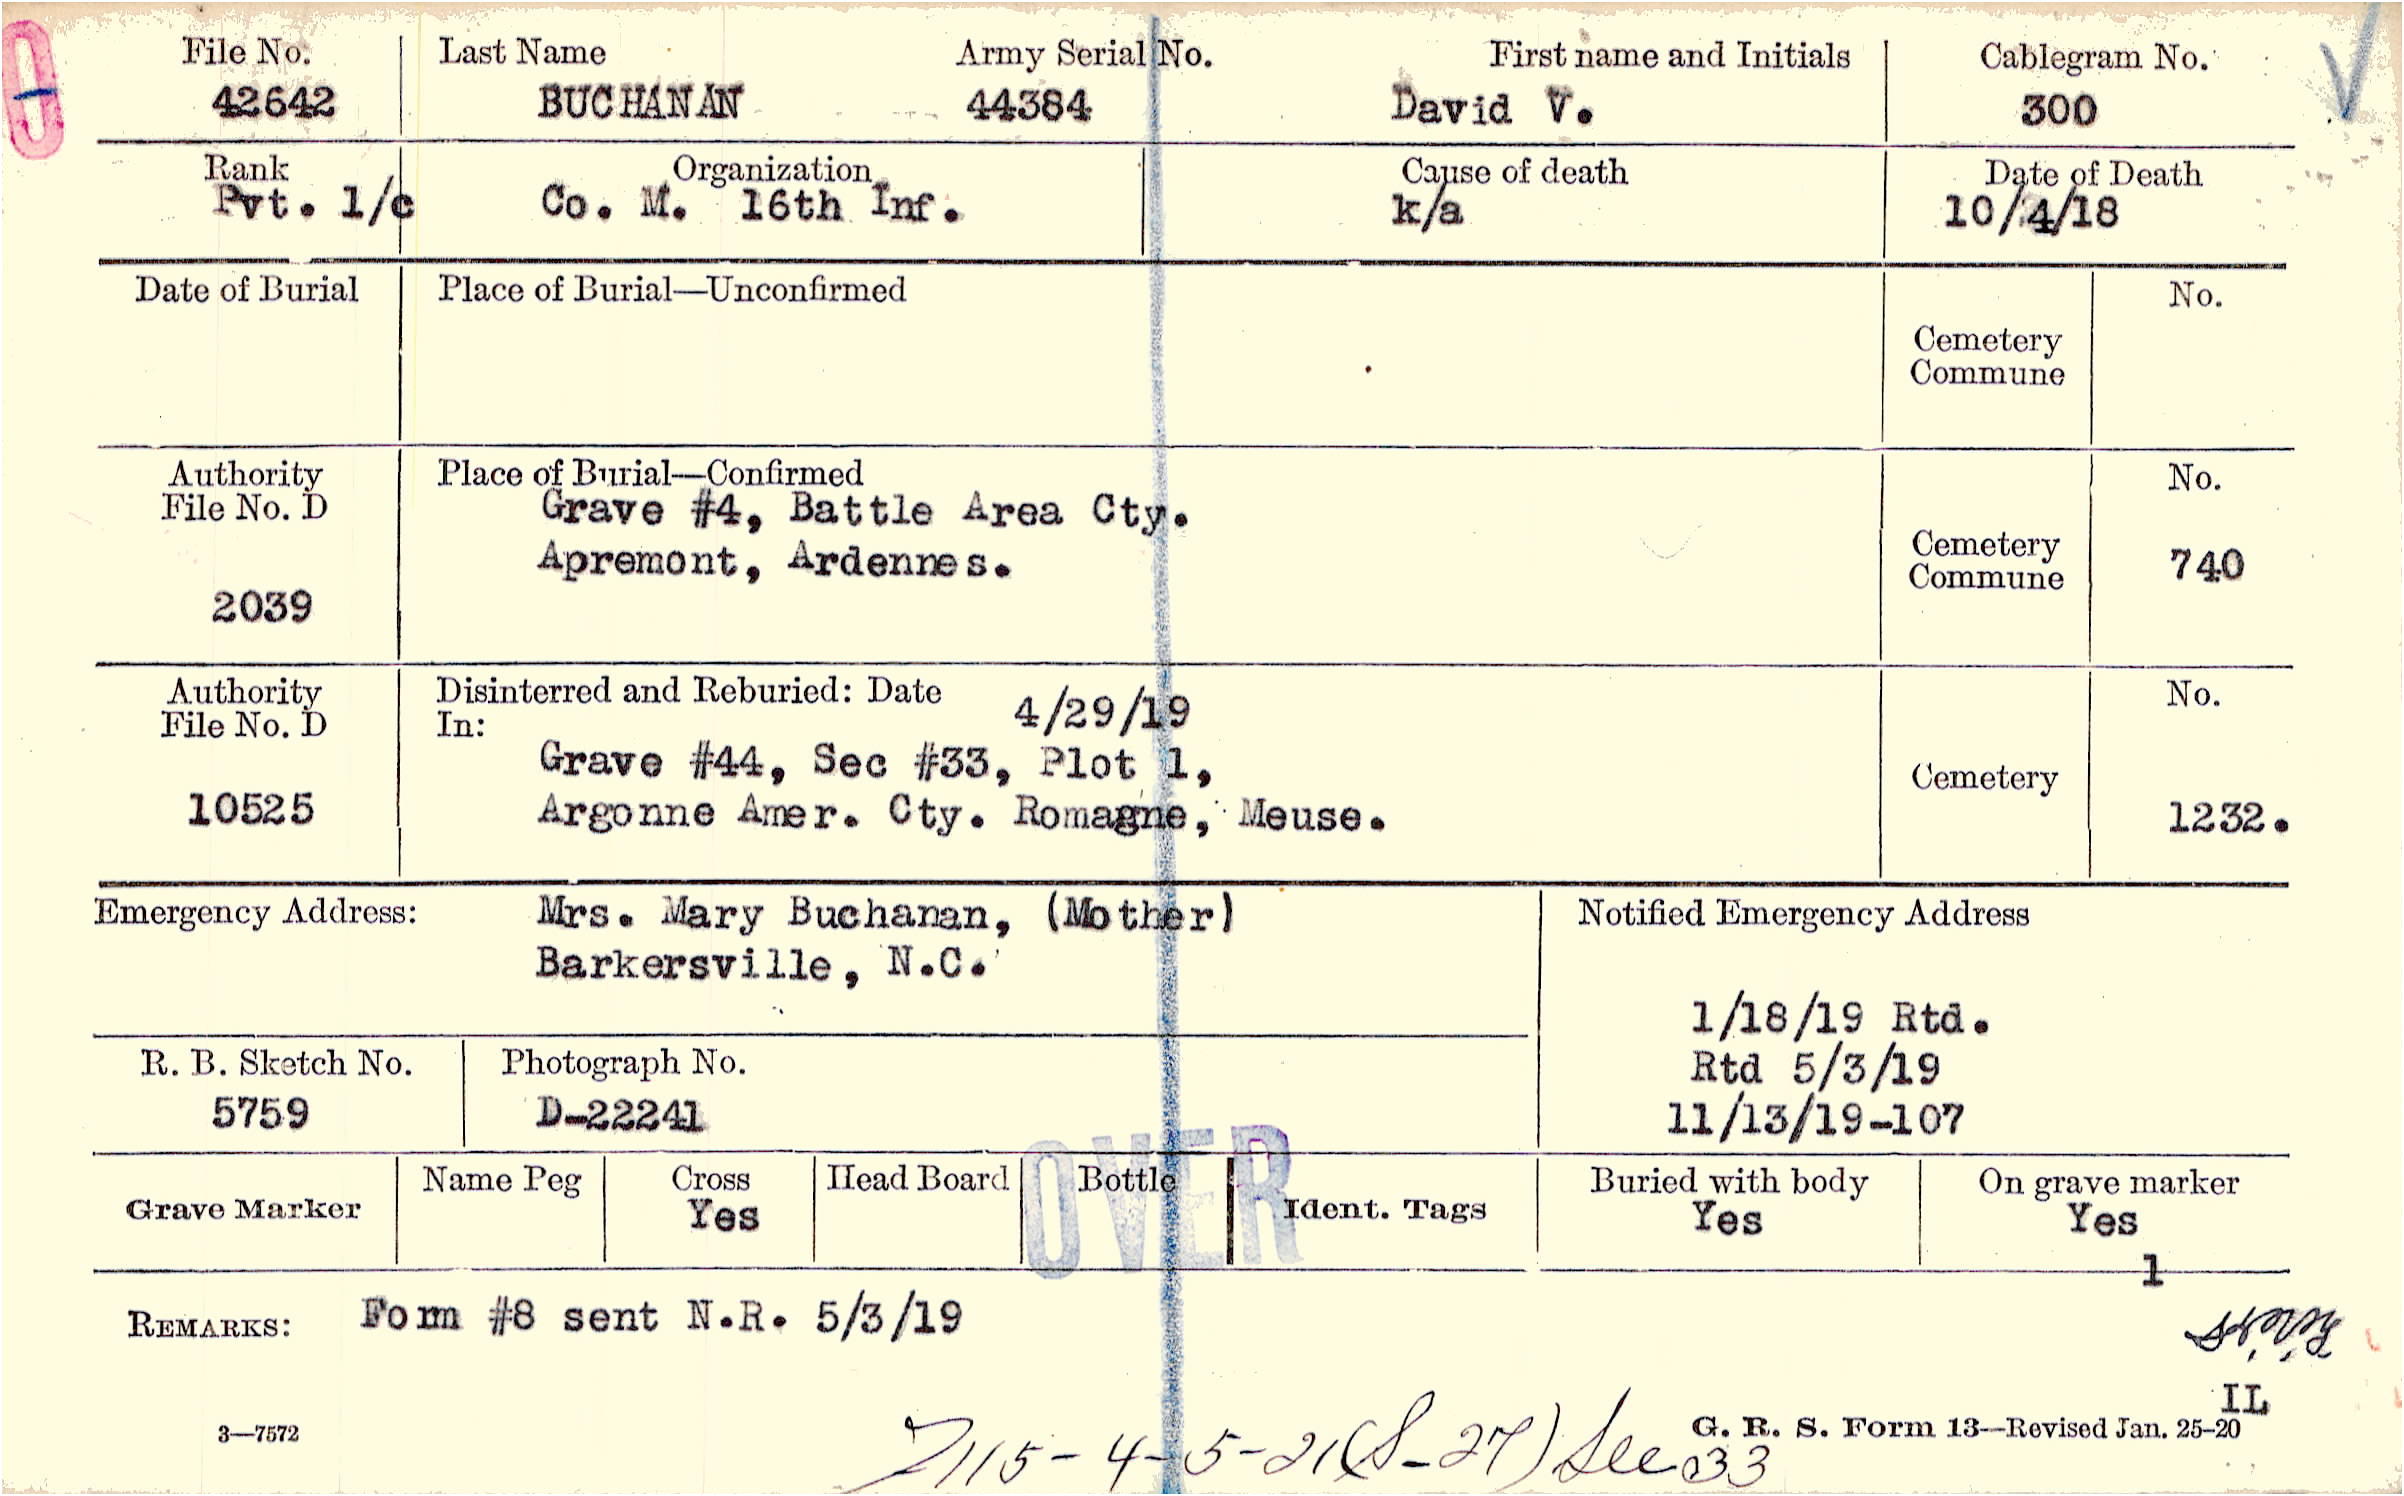 File No. Last Name Army Serial No. First name and Initials Cablegram No.
42642 BUCHANAN 44384 David V. 300
Rank Organization Cause of death Date of Death
Pvt. 1/c Co. M. 16th Inf. k/a 10/4/18
Date of Burial Place of Burial—Unconfirmed No.
Cemetery
Commune
Authority Place of Burial—Confirmed No.
File No. D Grave #4, Battle Area Cty.
Apremont, Ardennes. Cemetery
Commune 740
2039
Authority Disinterred and Reburied: Date 4/29/19 No.
File No. D In:
Grave #44, Sec #33, Plot 1,
Cemetery
10525 Argonne Amer. Cty. Romagne, Meuse. 1232.
Emergency Address: Mrs. Mary Buchanan, (Mother) Notified Emergency Address
Barkersville, N.C.
1/18/19 Rtd.
R. B. Sketch No. Photograph No. Rtd 5/3/19
5759 D-22241 11/13/19-107
OVER
Grave Marker Name Peg Cross Head Board Bottle Ident. Tags Buried with body On grave marker
Yes Yes Yes
1
REMARKS: Form #8 sent N.R. 5/3/19
IL
3—7572 G. R. S. Form 13—Revised Jan. 25-20
115-4-5-21(S-27) Sec 33